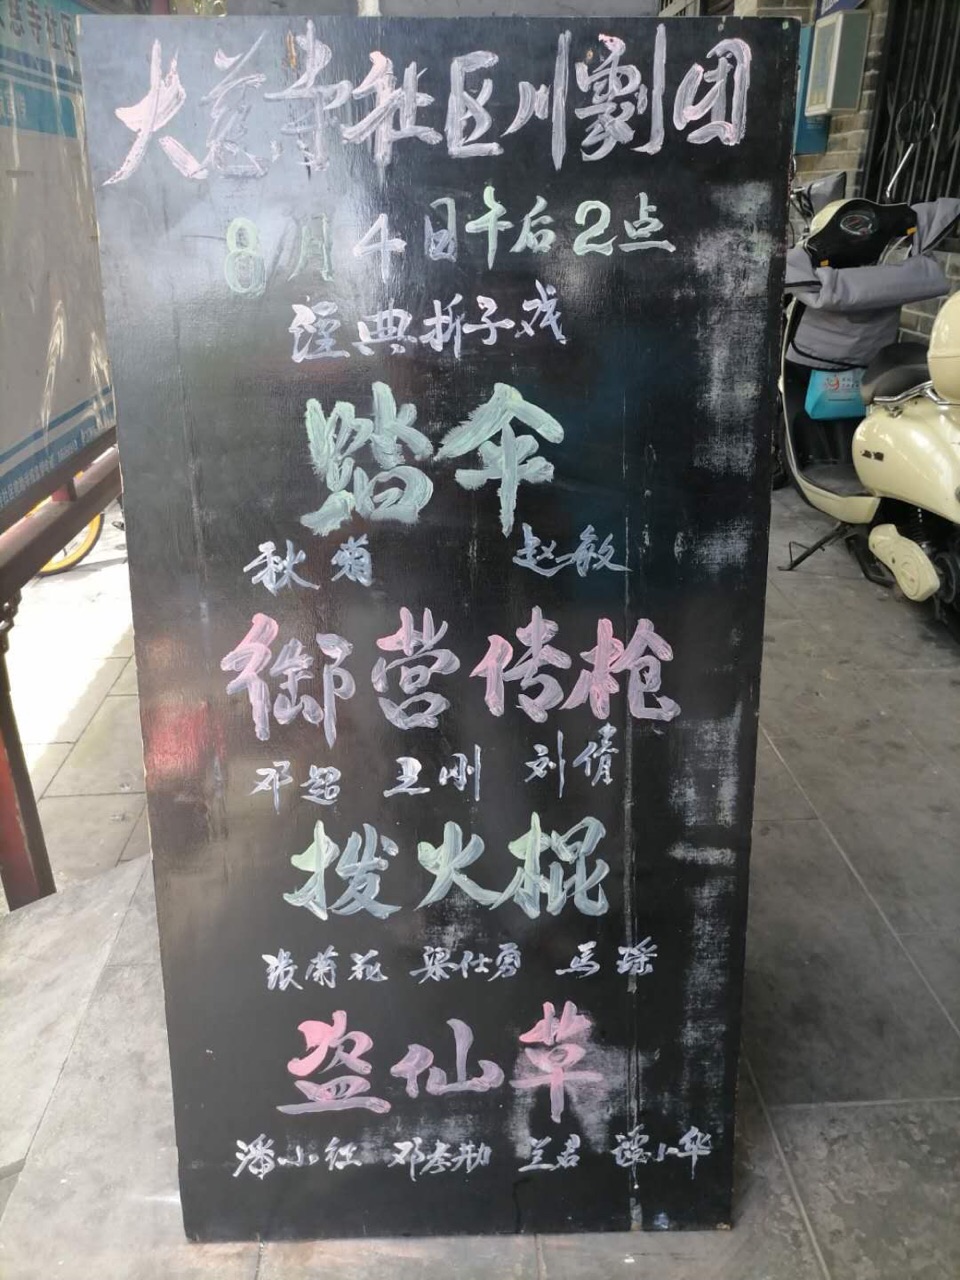 大慈寺社区川劇团
8月4日午后2点
経典折子戏
踏伞
秋菊 赵敏
御营传枪
邓超 卫刚 刘倩
拨火棍
张菊花 梁仕勇 马瑶
盗仙草
潘小红 邓孝勋 兰君 谭小华